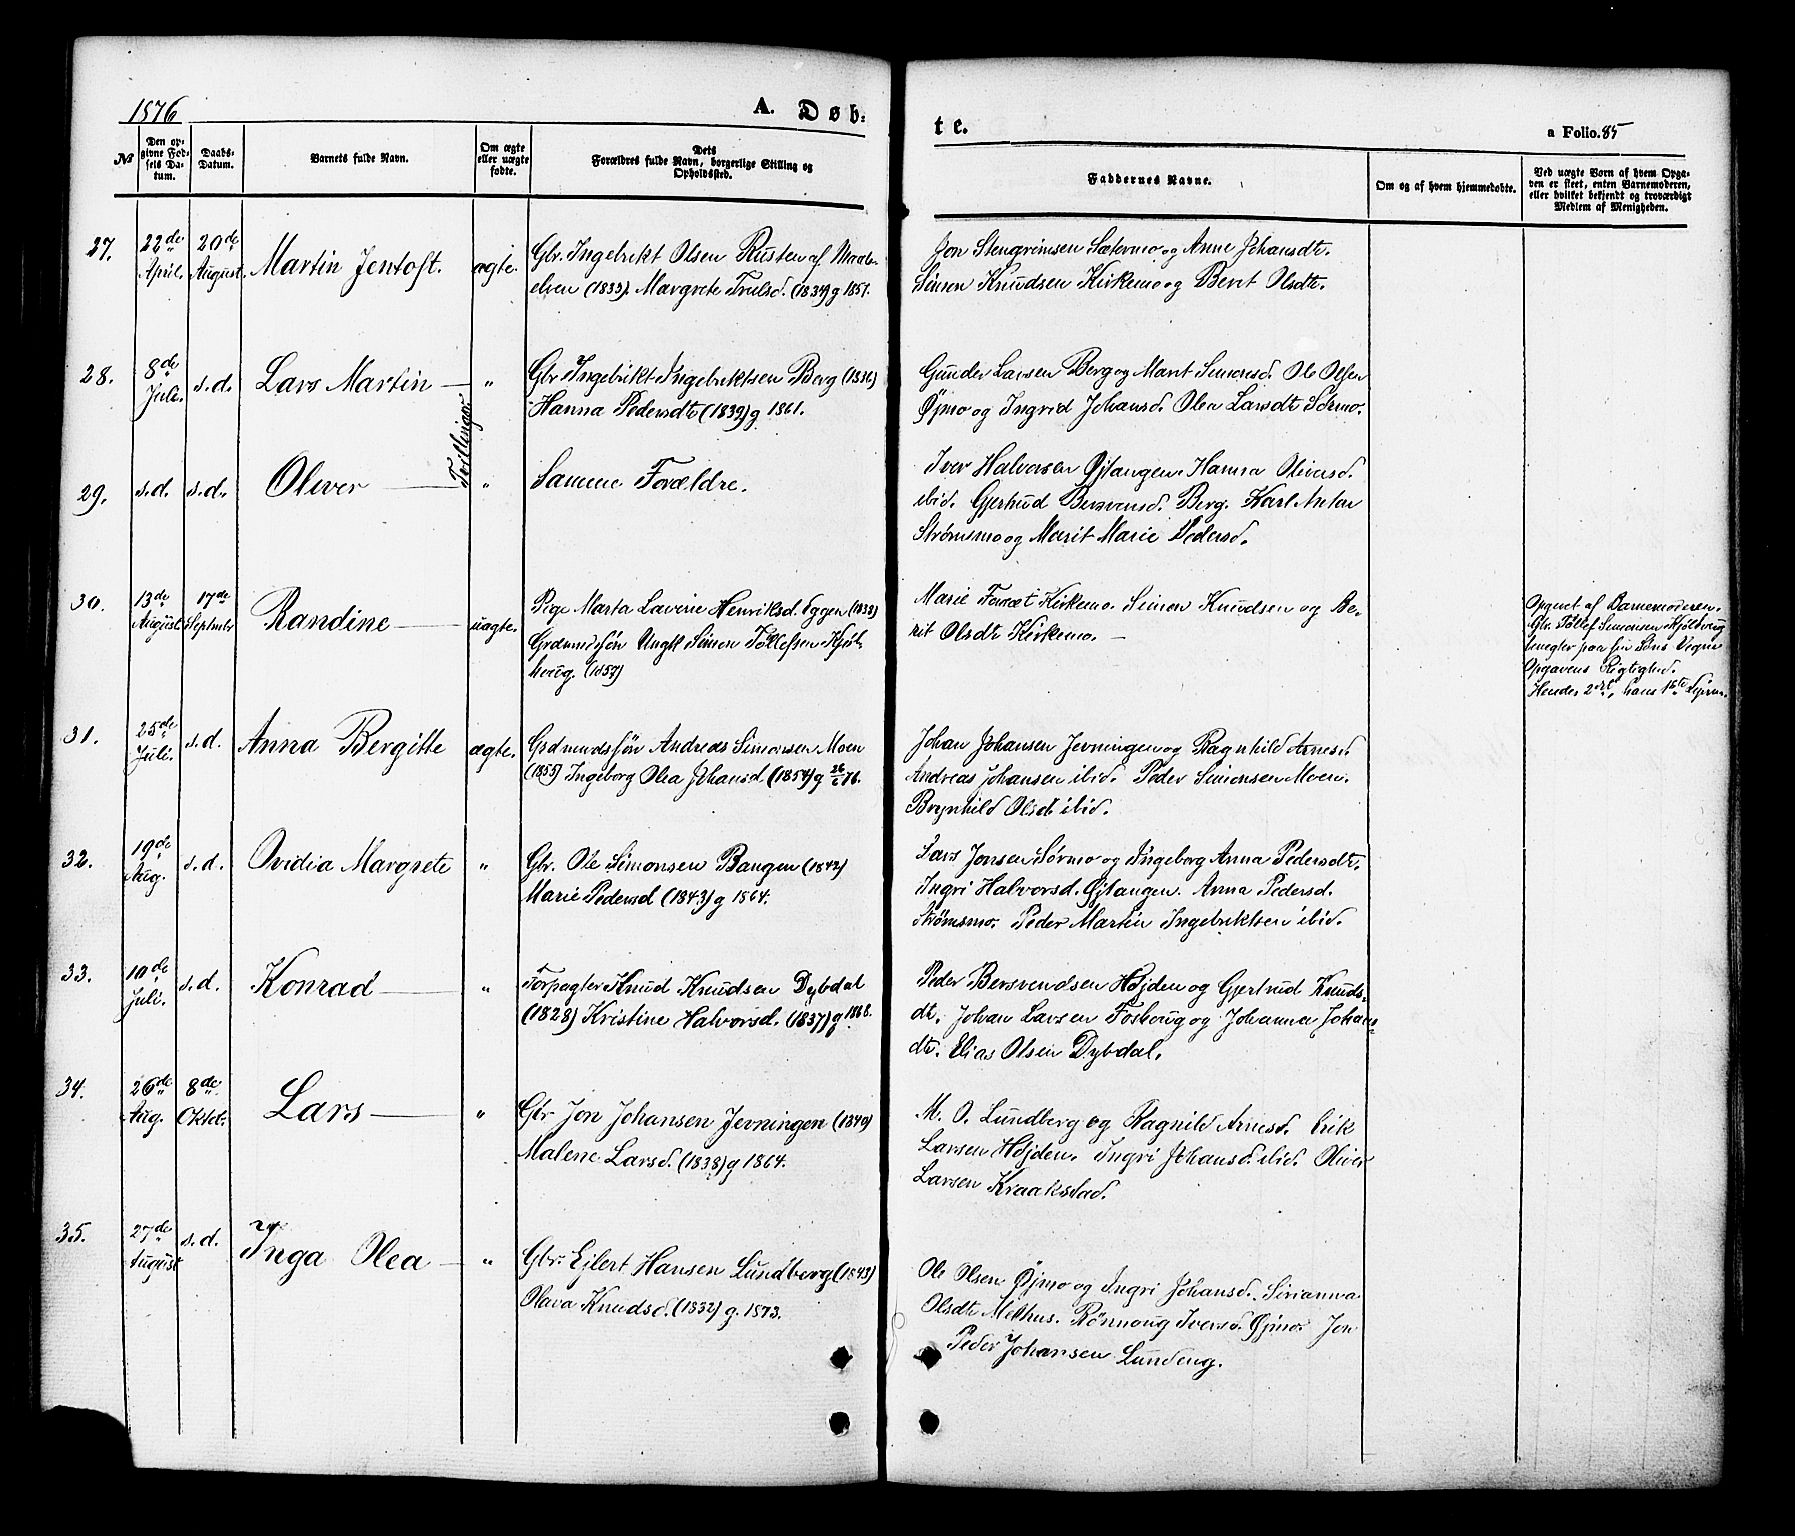 1876
A. Døb-
te.
a Folio. 85
No
Den op-
givne Fød-
sels Da-
tum.
Daabs-
Datum.
Barnets fulde Navn.
Om ægte
eller uægte
fødte.
Dets
Forældres fulde Navn, borgerlige Stilling og
Opholdssted.
Faddernes Navne.
Om og af hvem hjemmedøbte.
Ved uægte Børn af hvem Opga-
ven er skeet, enten Barnemoderen,
eller hvilket bekjendt og troværdigt
Medlem af Menigheden.
27.
22de
April.
20de
August.
Martin Jentoft.
ægte.
Gbr. Ingebrikt Olsen Rusten af Maals-
elven (1833). Margrete Trulsd. (1834) g 1857.
Jon Stengrimsen Sætermo og Anne Johansdt.
Simon Knudsen Kirkemo og Berit Olsdt.
28.
8de
Juli.
s.d.
Lars Martin —
Tvillinger
"
Gbr Ingebrikt Ingebriktsen Berg (1836)
Hanna Pedersdt (1839) g 1861.
Gunder Larsen Berg og Marit Simonsd. Ole Olsen
Øjmo og Ingrid Johansd. Olea Larsdt Sörmo.
29.
s.d.
s.d.
Oliver —
"
Samme Forældre.
Iver Halvorsen Øjtangen. Hanna Oliversd.
ibid. Gjertrud Bersvensd. Berg. Karl Anton
Strömsmo og Marit Marie Pedersd.
30.
13de
August.
17de
Septmbr
Randine —
uægte.
Pige Marta Lavine Henriksd. Eggen (1838)
Grdmndssön Ungk Simon Tollefsen Kjöl-
houg. (1857)
Marie Foræt Kirkemo. Simon Knudsen og Be-
rit Olsdt Kirkemo. —
Opgivet af Barnemoderen.
Gbr. Tollef Simonsen Kjölhoug
benegter paa sin Söns Vegne
Opgavens Rigtighed.
Hendes 2det, hans 1ste Lejerm.
31.
25de
Juli.
s.d.
Anna Bergitte
ægte.
Grdmndssön Andreas Simonsen Moen
(1855) Ingeborg Olea Johansd (1854) g 26/6 76.
Johan Johansen Jevningen og Ragnhild Arnesd.
Andreas Johansen ibid. Peder Simonsen Moen.
Brynhild Olsdt ibid.
32.
19de
Aug.
s.d.
Ovidia Margrete
"
Gbr. Ole Simonsen Bangen (1842)
Marie Pedersd (1843) g 1864.
Lars Jonsen Sörmo og Ingeborg Anna Pedersdt.
Ingri Halvorsd. Øjtangen. Anna Pedersd.
Strömsmo. Peder Martin Ingebriktsen ibid.
33.
10de
Juli.
s.d.
Konrad —
"
Forpagter Knud Knudsen Dybdal
(1828) Kristine Halvorsd. (1837) g 1868.
Peder Bersvendsen Höjden og Gjertrud Knuds-
dt. Johan Larsen Foshoug og Johanna Johans-
dt. Elias Olsen Dybdal.
34.
26de
Aug.
8de
Oktob:
Lars —
"
Gbr Jon Johansen Jevningen (1840)
Malene Larsd. (1838) g 1864.
M. O. Lundberg og Ragnild Arnesd. Erik
Larsen Höjden. Ingri Johansd. ibid. Oliver
Larsen Kraakstad.
35.
27de
August
s.d.
Inga Olea —
"
Gbr. Ejlert Hansen Lundberg (1843)
Olava Knudsd. (1832) g. 1873.
Ole Olsen Øjmo og Ingri Johansd. Sirianna
Olsdt Melhus. Rönnaug Iversd. Øjmo. Jon
Peder Johansen Lundeng.